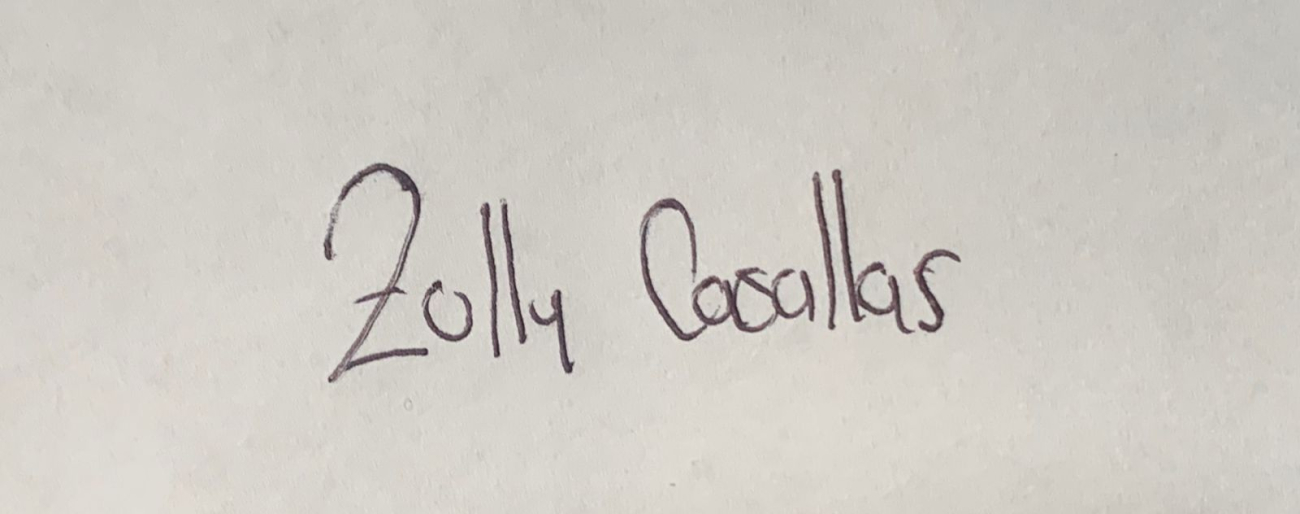 Zolly Casallas